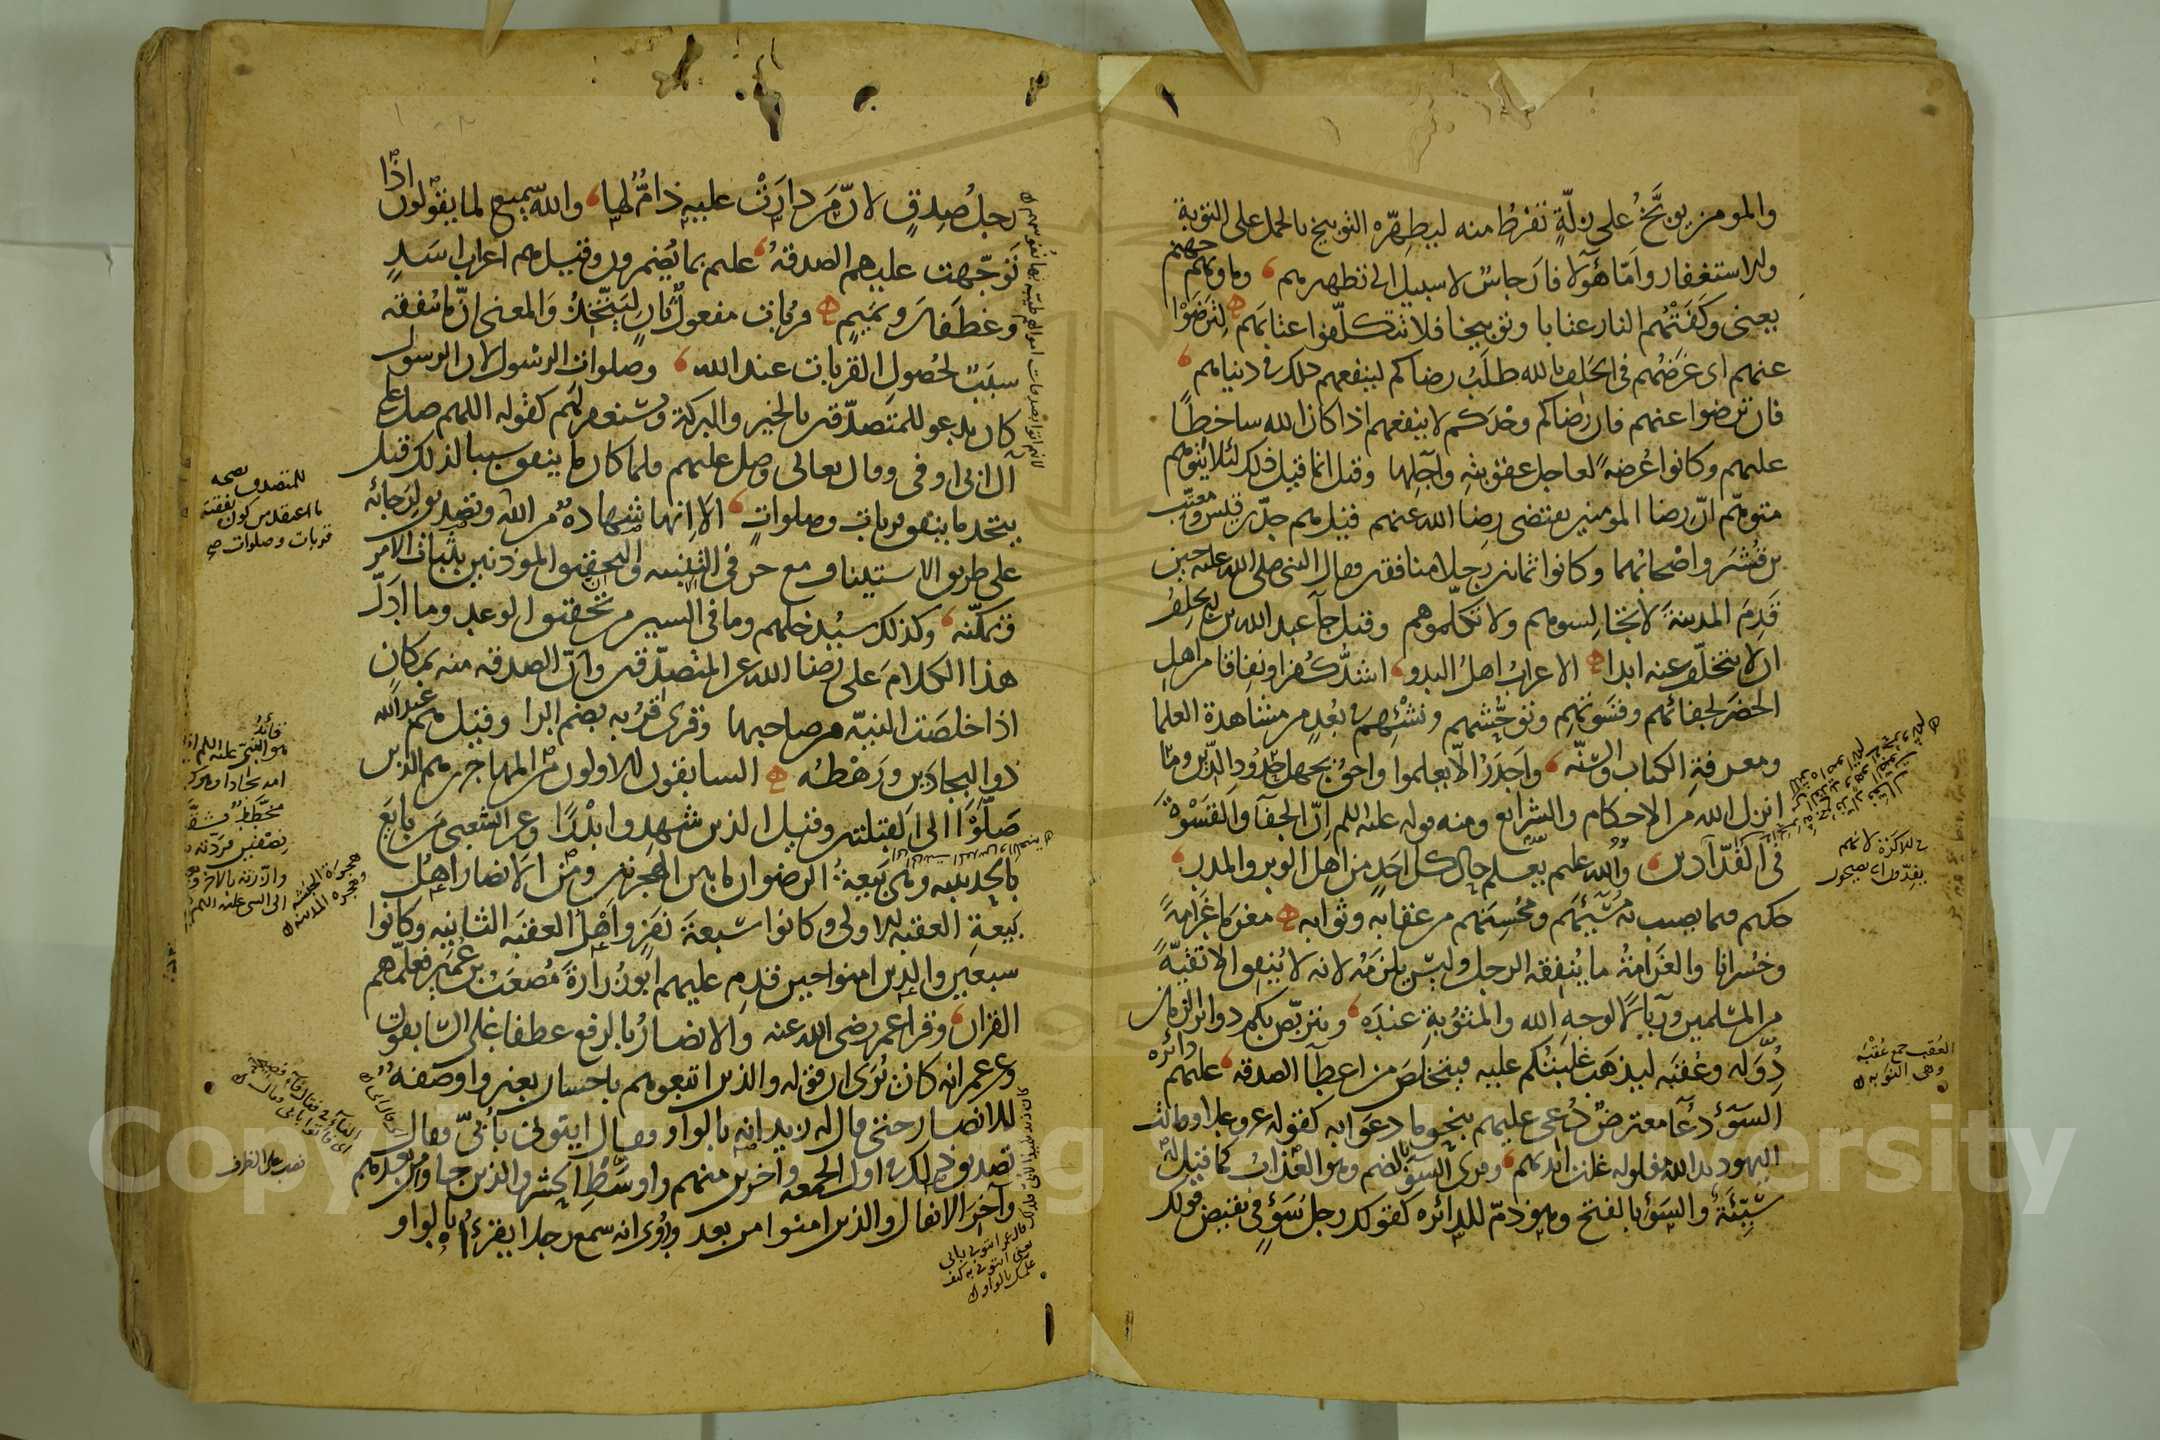 والمومن يوبَّخُ على زلّةٍ تفرُطُ منه ليطهّره التوبيخ بالحمل على التوبة
والاستغفار واَمّا هٰؤلا فارجاسٌ لا سبيل الى تطهيرهم وماويهم جهنم
يعنى وكَفَتْهُم النار عتابا وتوبيخا فلا تتكلّفوا عتابهم لِتَرضَوْا
عنهم اى غرَضُهم فى الحَلِف بالله طلَبُ رضاكم لينفعهم ذلك فى دنياهم
فان ترضوا عنهم فان رضاكم وحْدَكم لا ينفعهم اذا كان الله ساخطًا
عليهم وكانوا عُرضةً لعاجل عقوبتهِ وآجلِها وقيل انما قيل ذلك لئلا يتوهّم
متوهّم انّ رضا المومنين يقتضى رضا الله عنهم قيل هم جدّ بن قيس ومعتّب
بن قُشَير واصْحابُهما وكانوا ثمانين رجلا منافقين وقال النبى صلى الله عليه حين
قَدِمَ المدينةَ لا تجالسوهم ولا تكلّموهم وقيل جآ عبد الله بن اُبىّ يحلِفُ
ان لا يتخلّف عنه ابدا الاعرابُ اهلُ البدو اشدُّ كُفرا ونِفاقا من اهلِ
الحضَر لجفائهم وقَسْوتهِم وتوحُّشهم ونَشْئِهم فى بُعدٍ من مشاهدة العلما
ومعرفةِ الكتاب والسّنّه واَجدَرُ الّا يعلموا واحقّ بجهل حدُودِ الدّين وما
انزل الله من الاحكام والشرايع ومنه قوله عليه السلم انّ الجفآ والقَسْوةَ
فى الفَدّادين والله عليم يعلم حال كل احَدٍ من اهل الوبر والمدر
حكيم فيما يصيب به مُسيئَهم ومُحْسِنَهم من عقابه وثوابه مغرما غرامةً
وخُسرانا والغَرامَةُ ما يُنفِقه الرجل وليس يلزمُهُ لانه لا يُنفِق الا تَقيّةً
من المسلمين وريآءً لا لوجهِ الله والمَثُوبةِ عندَه ويتربّص بكم دوائر الزمان
دُوَله وعُقَبَه ليذهَبَ غلَبَتُكم عليه فيتخلّصَ من اعطآ الصدقة عليهم دائرة
السَوْءِ دُعآ معترضٌ دُعى عليهم بنحو ما دعوا به كقوله عز وعلا وقالت
اليهود يد الله مغلولة غلت ايديهم وقرى السُوءُ بالضم وهو العذابُ كما قيل له
سيّئةٌ والسَوْء بالفتح وهو ذمّ للدائرة كقولك رجل سَوْءٍ فى نقيض قولك
العُقَب جمع عُقْبَه
وهى النوبه
رجلُ صِدقٍ لانّ مَن دارَتْ عليه ذامٌّ لها والله سميع لما يقولون اذا
تَوجّهت عليهم الصدقةُ عليم بما يُضمرون وقيل هم اعراب اسَدٍ
وغطَفان وتميمٍ قربات مفعولٌ ثانٍ ليَتّخِذُ والمعنى انّ ما ينفقه
سببٌ لحُصولِ القربات عند الله وصلوات الرسول لان الرسول
كان يدعو للمتصدّقين بالخير والبركة ويستغفر لهم كقوله اللهم صل على
آل ابى اوفى وقال تعالى وصلّ عليهم فلما كان ما ينفق سببا لذلك قيل
يتخذ ما ينفق قربات وصلواتٍ الا اِنها شهادةٌ من الله وتصديق لرجائه
على طريق الاستيناف مع حرفى التنبيه والتحقيق المؤذنين بثَباتِ الامر
وتمكّنه وكذلك سيُدخلهم وما فى السين من تحقيق الوعد وما اَدَلّ
هذا الكلامَ على رضا الله عن المتصدّقين وانّ الصدقه منه بمكانٍ
اذا خلصَت النيّه من صاحبها وقرى قرُبه بضم الرا وقيل هم عبد الله
ذو البجادَين ورهْطُه السابقون الاولون من المهاجرين هم الذين
صَلَّوْا الى القبلتين وقيل الذين شهدوا بدْرًا وعن الشعبى مَن بايَعَ
بالحديبيه وهى بَيعةُ الرضوان ما بين الهجرتين ومن الانصار اهلُ
بَيعةِ العقبه الاولى وكانوا سبعةَ نفَرٍ واهلُ العقبه الثانيه وكانوا
سبعين والذين امنوا حين قدِم عليهم ابو زُرارةَ مُصعَبُ بن عُمَير فعلّمهم
القران وقرا عمر رضى الله عنه والانصارُ بالرفع عطفا على السابقون
وعن عمر انه كان يُرى ان قوله والذين اتبعوهم باحسان بغير واو صفةٌ
للانصار حتى قال له زيد انه بالواو فقال ايتونى بأُبَىّ فقال
تصديق ذلك فى اول الجمعه واخرين منهم واوسَطِ الحشر والذين جاوا من بعدهم
وآخرِ الانفال والذين امنوا من بعد ورُوى انه سمع رجلا يقرءُه بالواو
للمتصدق بصحه
ما اعتقد من كون نفقته
قربات وصلوات صح
هجرة الحبشه
وهجره المدينه
نصب على الظرف
Copyright © King Saud University